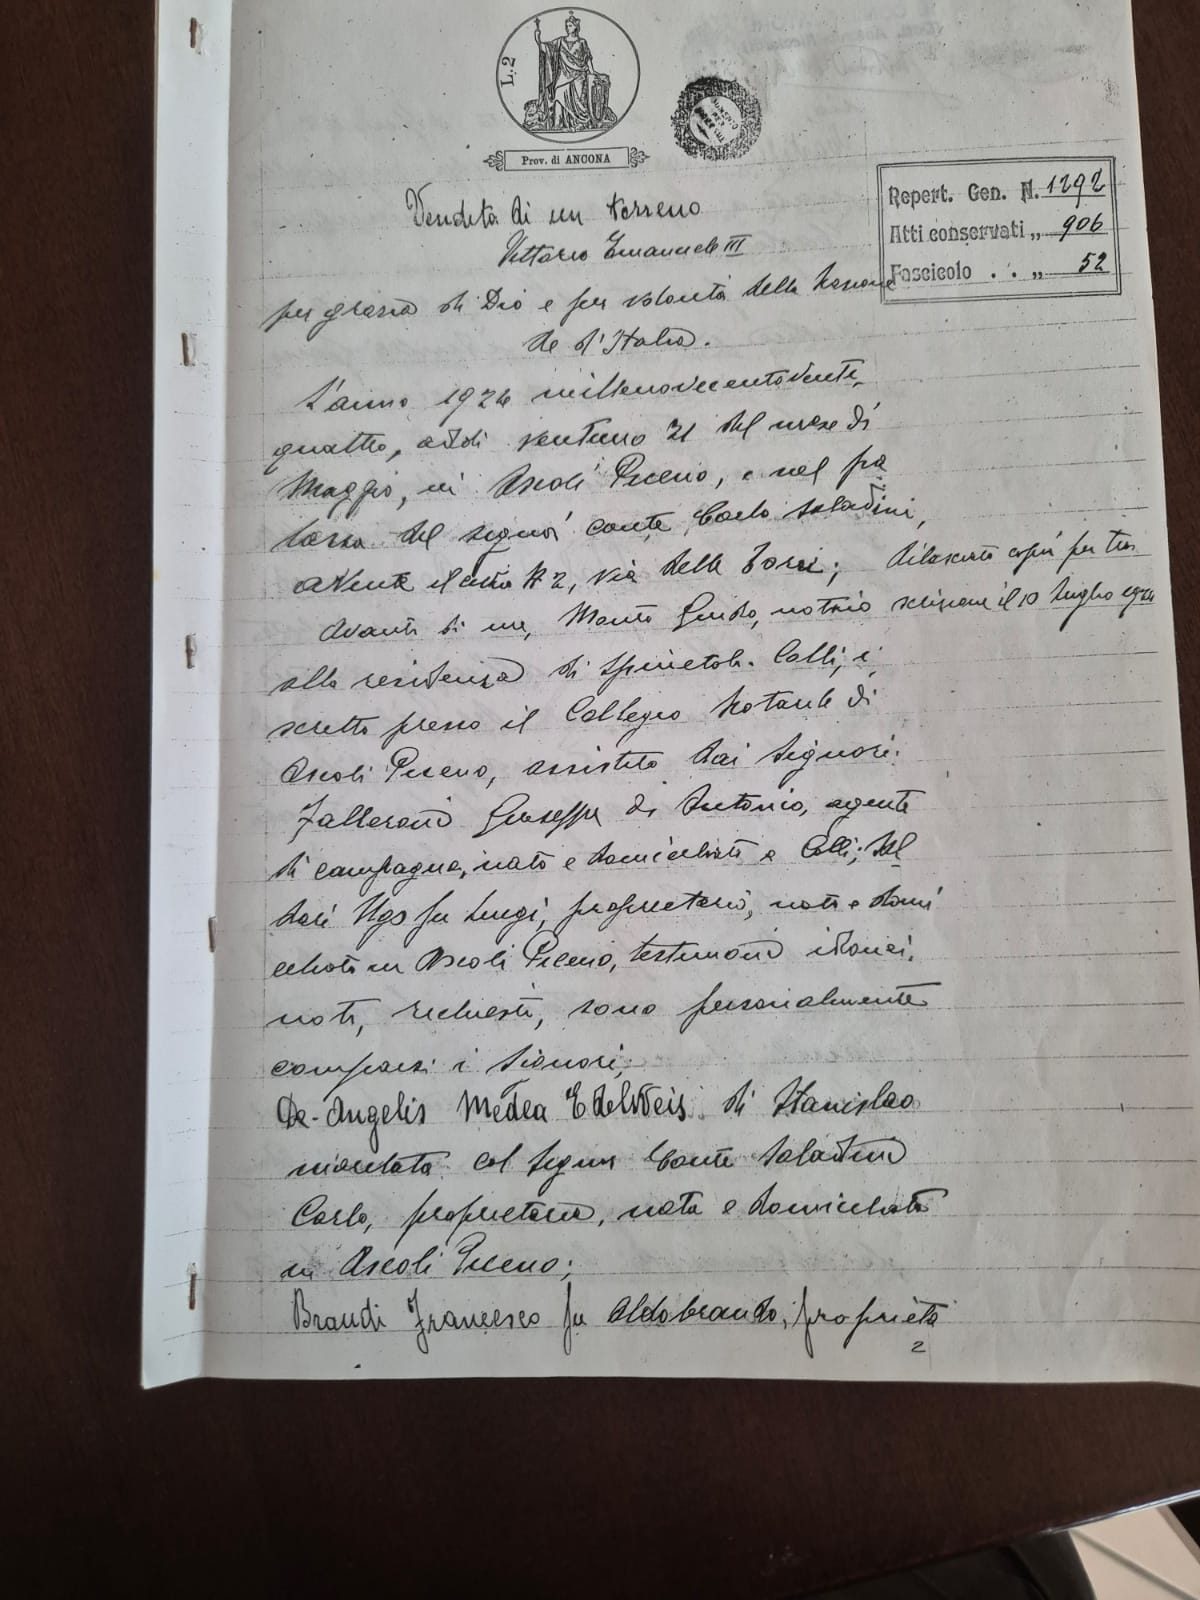 L. 2
Prov. di ANCONA
Repert. Gen. N. 1292
Atti conservati „ 906
Fascicolo . . „ 52
Vendita di un terreno
Vittorio Emanuele III
per grazia di Dio e per volontà della Nazione
Re d'Italia.
L'anno 1924 millenovecentovente
quattro, addì ventuno 21 del mese di
Maggio, in Ascoli Piceno, e nel pa
lazzo del signor conte Carlo Saladini,
avente il civico N 2, via delle Torri;
Rilasciata copia per tra
scrizione il 10 luglio 1924
Avanti di me, Guido, notaio
alla residenza di Spinetoli-Colli, i
scritto presso il Collegio Notarile di
Ascoli Piceno, assistito dai Signori:
Falleroni Giuseppe di Antonio, agente
di campagna, nato e domiciliato a Colli; Sal
dari Ugo fu Luigi, proprietario, nato e domi
ciliato in Ascoli Piceno, testimoni idonei,
noti, richiesti, sono personalmente
comparsi i Signori;
De-Angelis Medea Edelweis di Stanislao
maritata col signor Conte Saladini
Carlo, proprietaria, nata e domiciliata
in Ascoli Piceno;
Brandi Francesco fu Aldobrando, proprieta
2